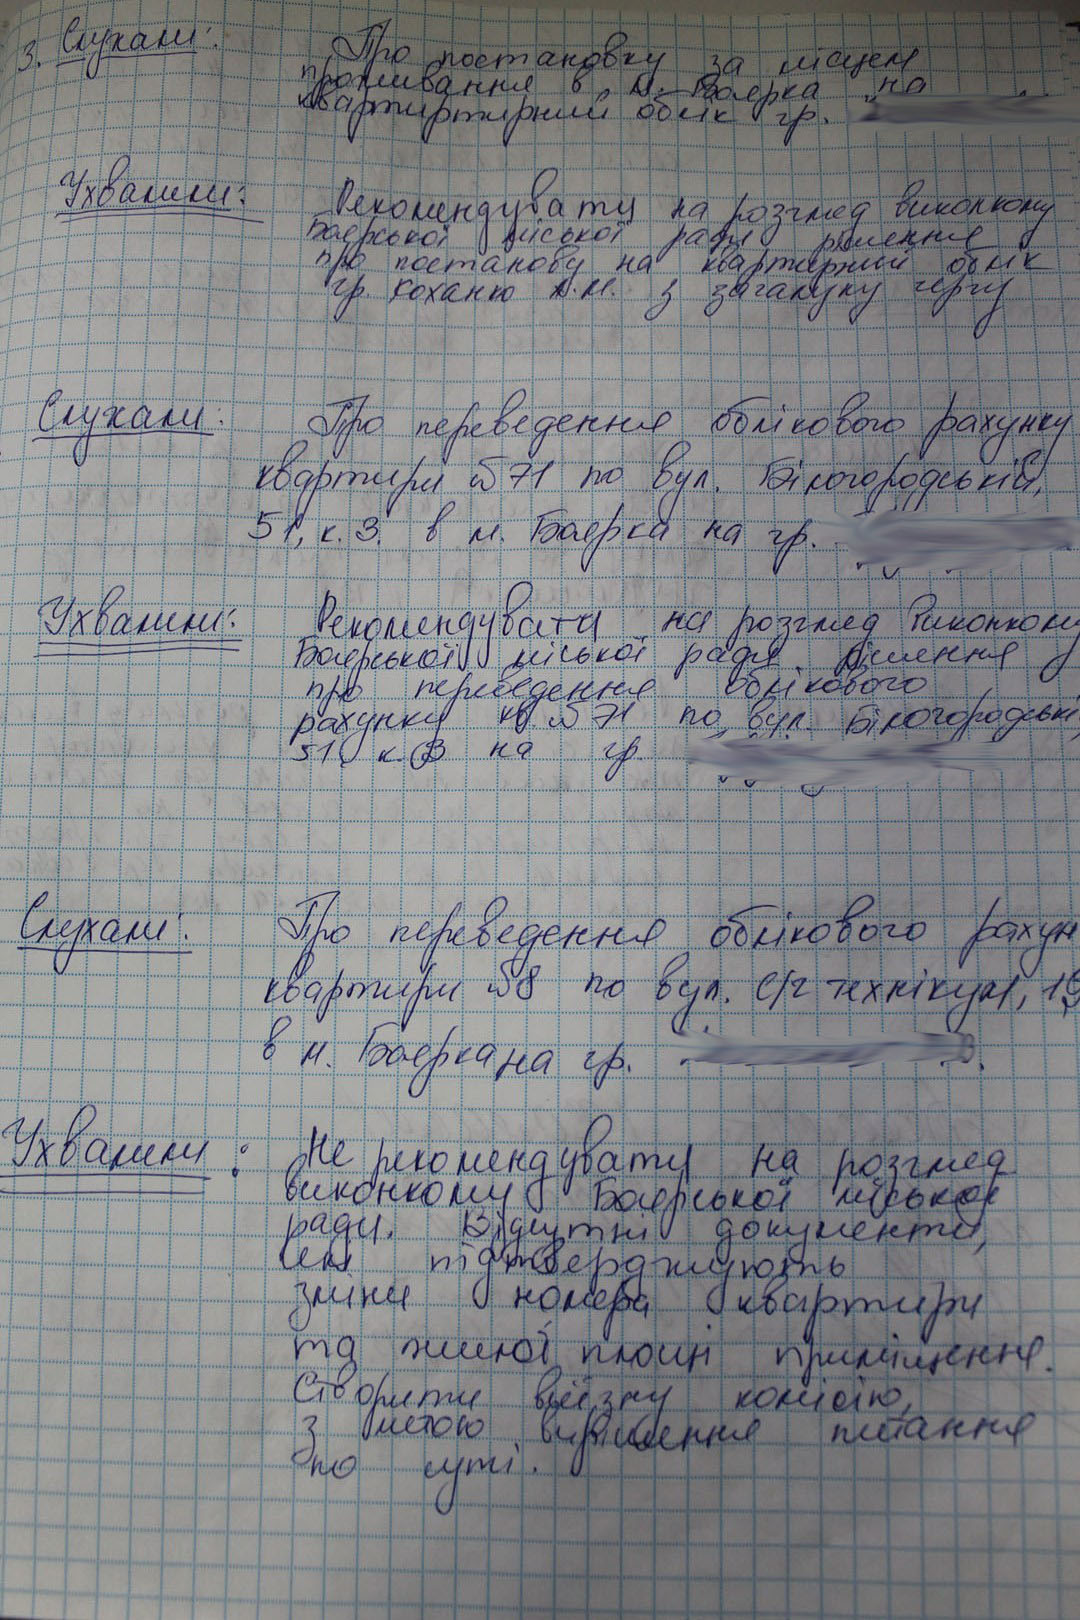 3. Слухали: Про постановку за місцем
проживання в м. Боярка на
квартиртирний облік гр.
Ухвалили: Рекомендувати на розгляд виконкому
Боярської міської ради рішення
про постанову на квартирний облік
гр. Коханю з загальну чергу
Слухали: Про переведення облікового рахунку
квартири №71 по вул. Білогородській,
51, к. 3. в м. Боярка на гр.
Ухвалили: Рекомендувати на розгляд Виконкому
Боярської міської ради рішення
про переведення облікового
рахунку кв. №71 по вул. Білогородські
51, к. 3 на гр.
Слухали: Про переведення облікового рахун
квартири №8 по вул. С/г технікум, 19
в м. Боярка на гр.
Ухвалили: Не рекомендувати на розгляд
виконкому Боярської міської
ради. Відсутні документи,
які підтверджують
зміни номера квартири
та жилої площі приміщення.
Створити виїзну комісію,
з метою вирішення питання
по суті.